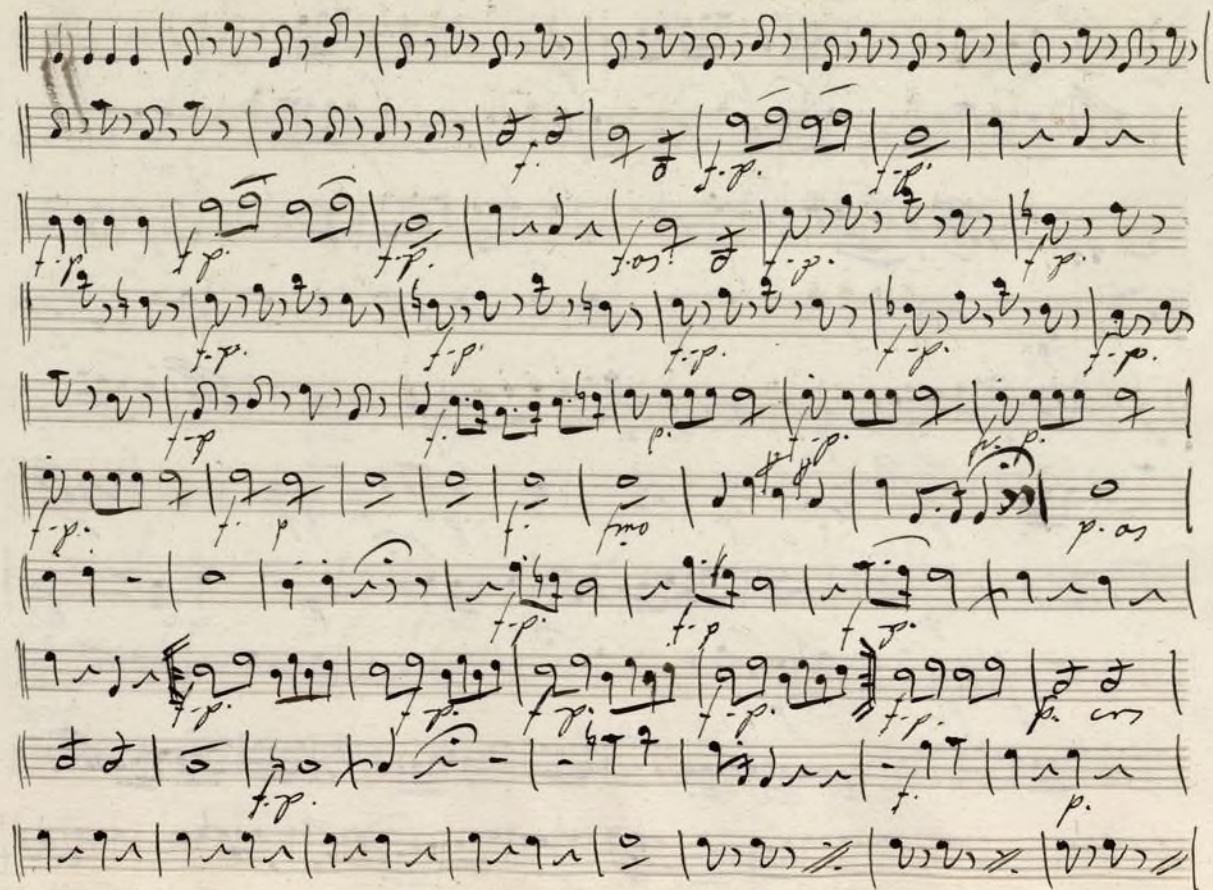 f. f.-p. f.-p.
f.-p. f-p. f.-p. f.-p. f.-p.
f.-p. f.-p. f.-p. f.-p. f.-po.
f-p f. p. f.-p. p.
f-p. f. p f. fmo p.
f.-p. f.-p f p.
f-p. f-p. f p. f-p. f-p. p.
f.-p. f. p.